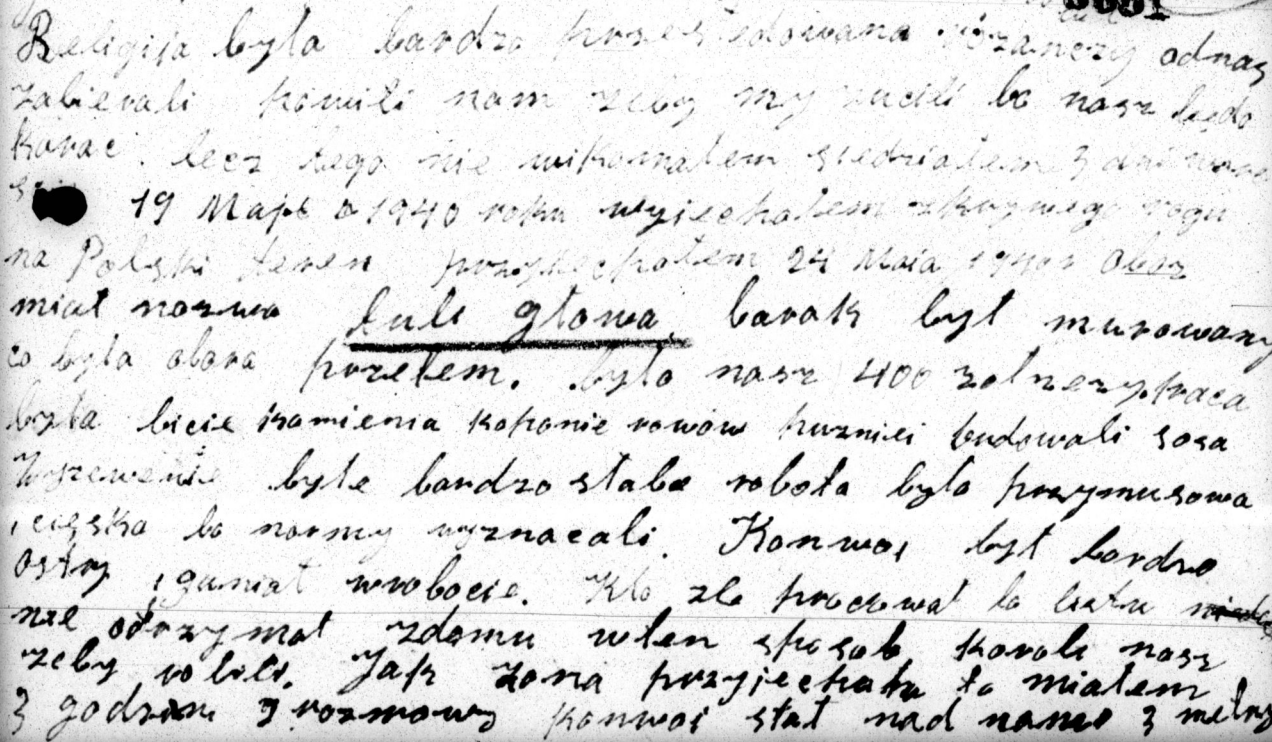 Religija była bardzo prześladowana różanczy odnas
zabierali mówili nam zeby my zucili bo nasz będo
karac. lecz tego nie wikonałem siedziałem 3 dni
19 Maja 1940 roku wyjechałem zkrzywego rogu
na Polski teren przyjechałem 24 Maia 1940r Oboz
miał nazwa Luli głowa, barak był murowany
co była obora przetem. było nasz 400 zołnezy, praca
była bicie kamienia kopanie rowów puzniei budowali sosa
Wyzewenie było bardzo słabe robota była przymusowa
i cięska bo normy wyznacali. Konwoi był bardzo
ostry i ganiał wrobocie. Kto zle pracował to listu
nie otrzymał zdomu wten sposob karali nasz
zeby robili. Jak zona przyjechała to miałem
3 godziny rozmowy konwoi stał nad nami 3 metry